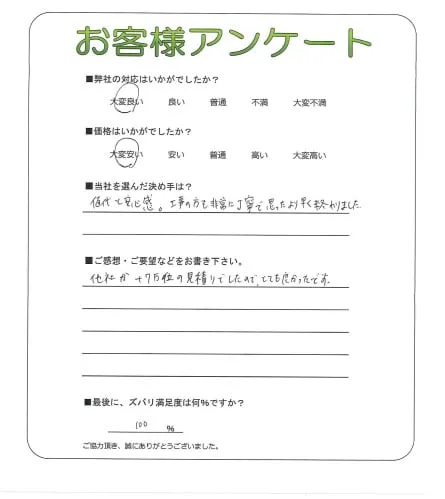 お客様アンケート
■弊社の対応はいかがでしたか?
大変良い 良い 普通 不満 大変不満
■価格はいかがでしたか?
大変安い 安い 普通 高い 大変高い
■当社を選んだ決め手は?
値段と安心感。工事の方も非常に丁寧で思ったより早く終わりました
■ご感想・ご要望などをお書き下さい。
他社が+7万位の見積りでしたので、とても良かったです。
■最後に、ズバリ満足度は何%ですか?
100 %
ご協力頂き、誠にありがとうございました。